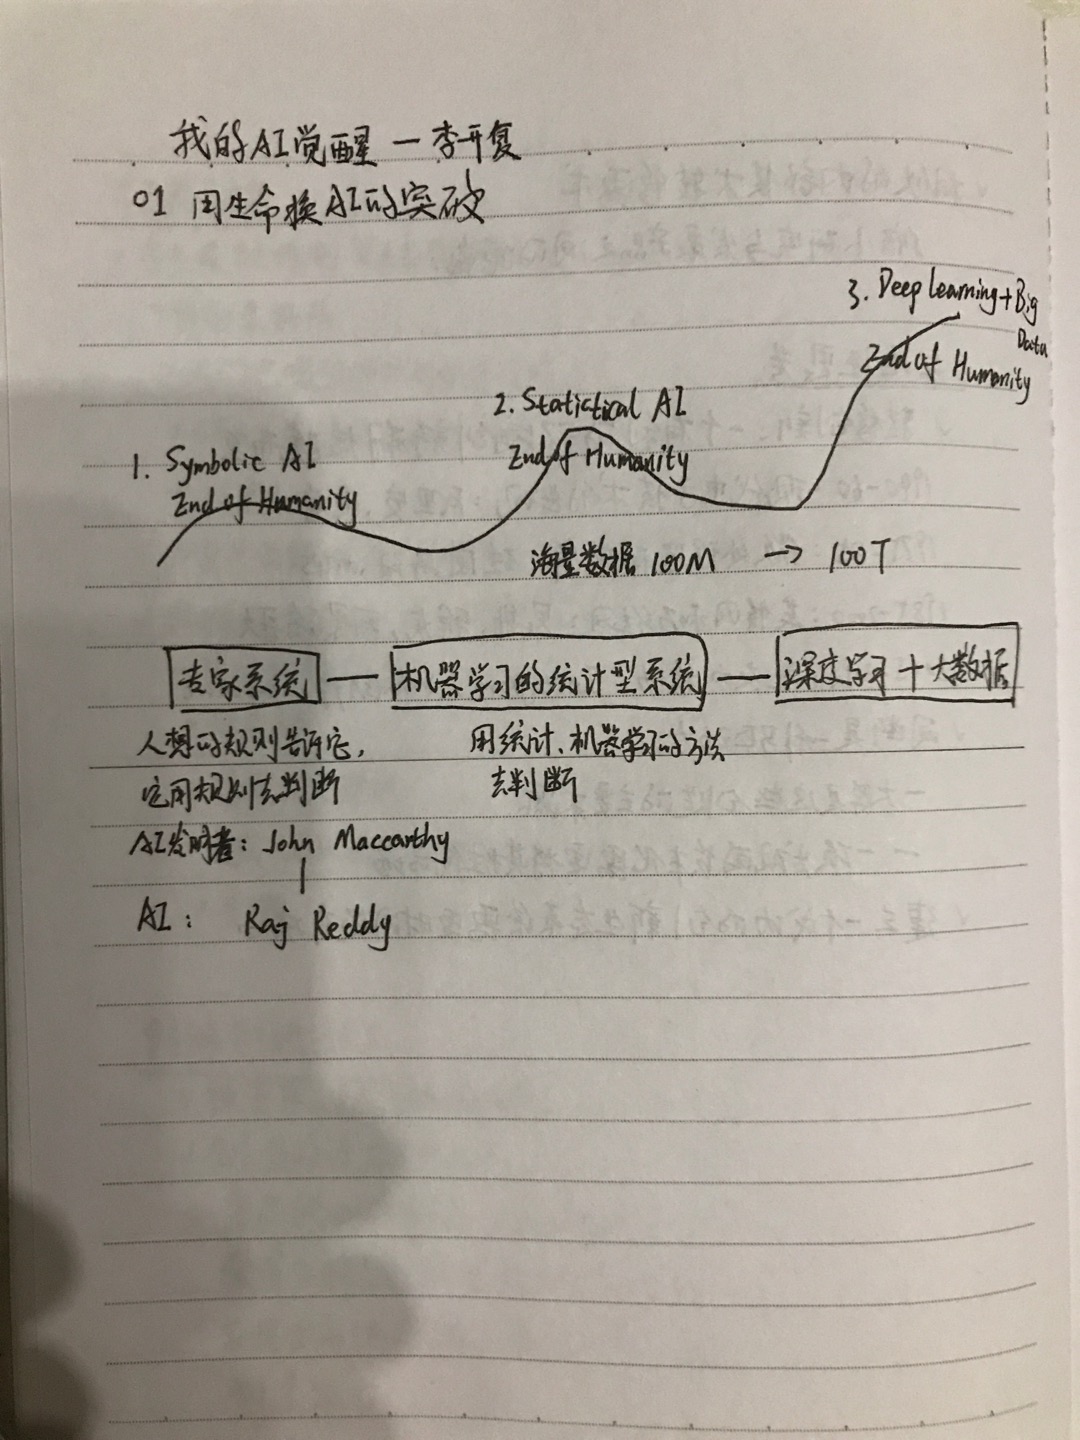 我的AI觉醒 — 李开复
01 用生命换AI的突破
3. Deep learning + Big Data
End of Humanity
2. Statistical AI
End of Humanity
1. Symbolic AI
End of Humanity
海量数据 100M → 100T
专家系统 — 机器学习的统计型系统 — 深度学习 + 大数据
人想的规则告诉它,
它用规则去判断
用统计、机器学习的方法
去判断
AI发明者: John Maccarthy
AI: Raj Reddy